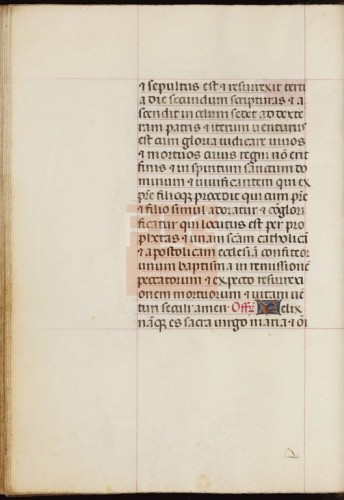 ⁊ sepultus est ⁊ resurrexit terti
a die secundum scripturas ⁊ a
scendit in celum sedet ad dexte
ram patris ⁊ iterum uenturus
est cum gloria iudicare uiuos
⁊ mortuos cuius regni nō erit
finis ⁊ in spiritum sanctum do
minum ⁊ uiuificantem qui ex
pr̄e filioqȝ procedit qui cum pr̄e
⁊ filio simul adoratur ⁊ cōglori
ficatur qui locutus est per pro
phetas ⁊ unam scām catholicā
⁊ apostolicam ecclesiā confiteor
unum baptisma in remissionē
peccatorum ⁊ expecto resurrexi
onem mortuorum ⁊ uitam uē
turi seculi amen Off̄ Felix
nāqȝ es sacra uirgo maria ⁊ oī